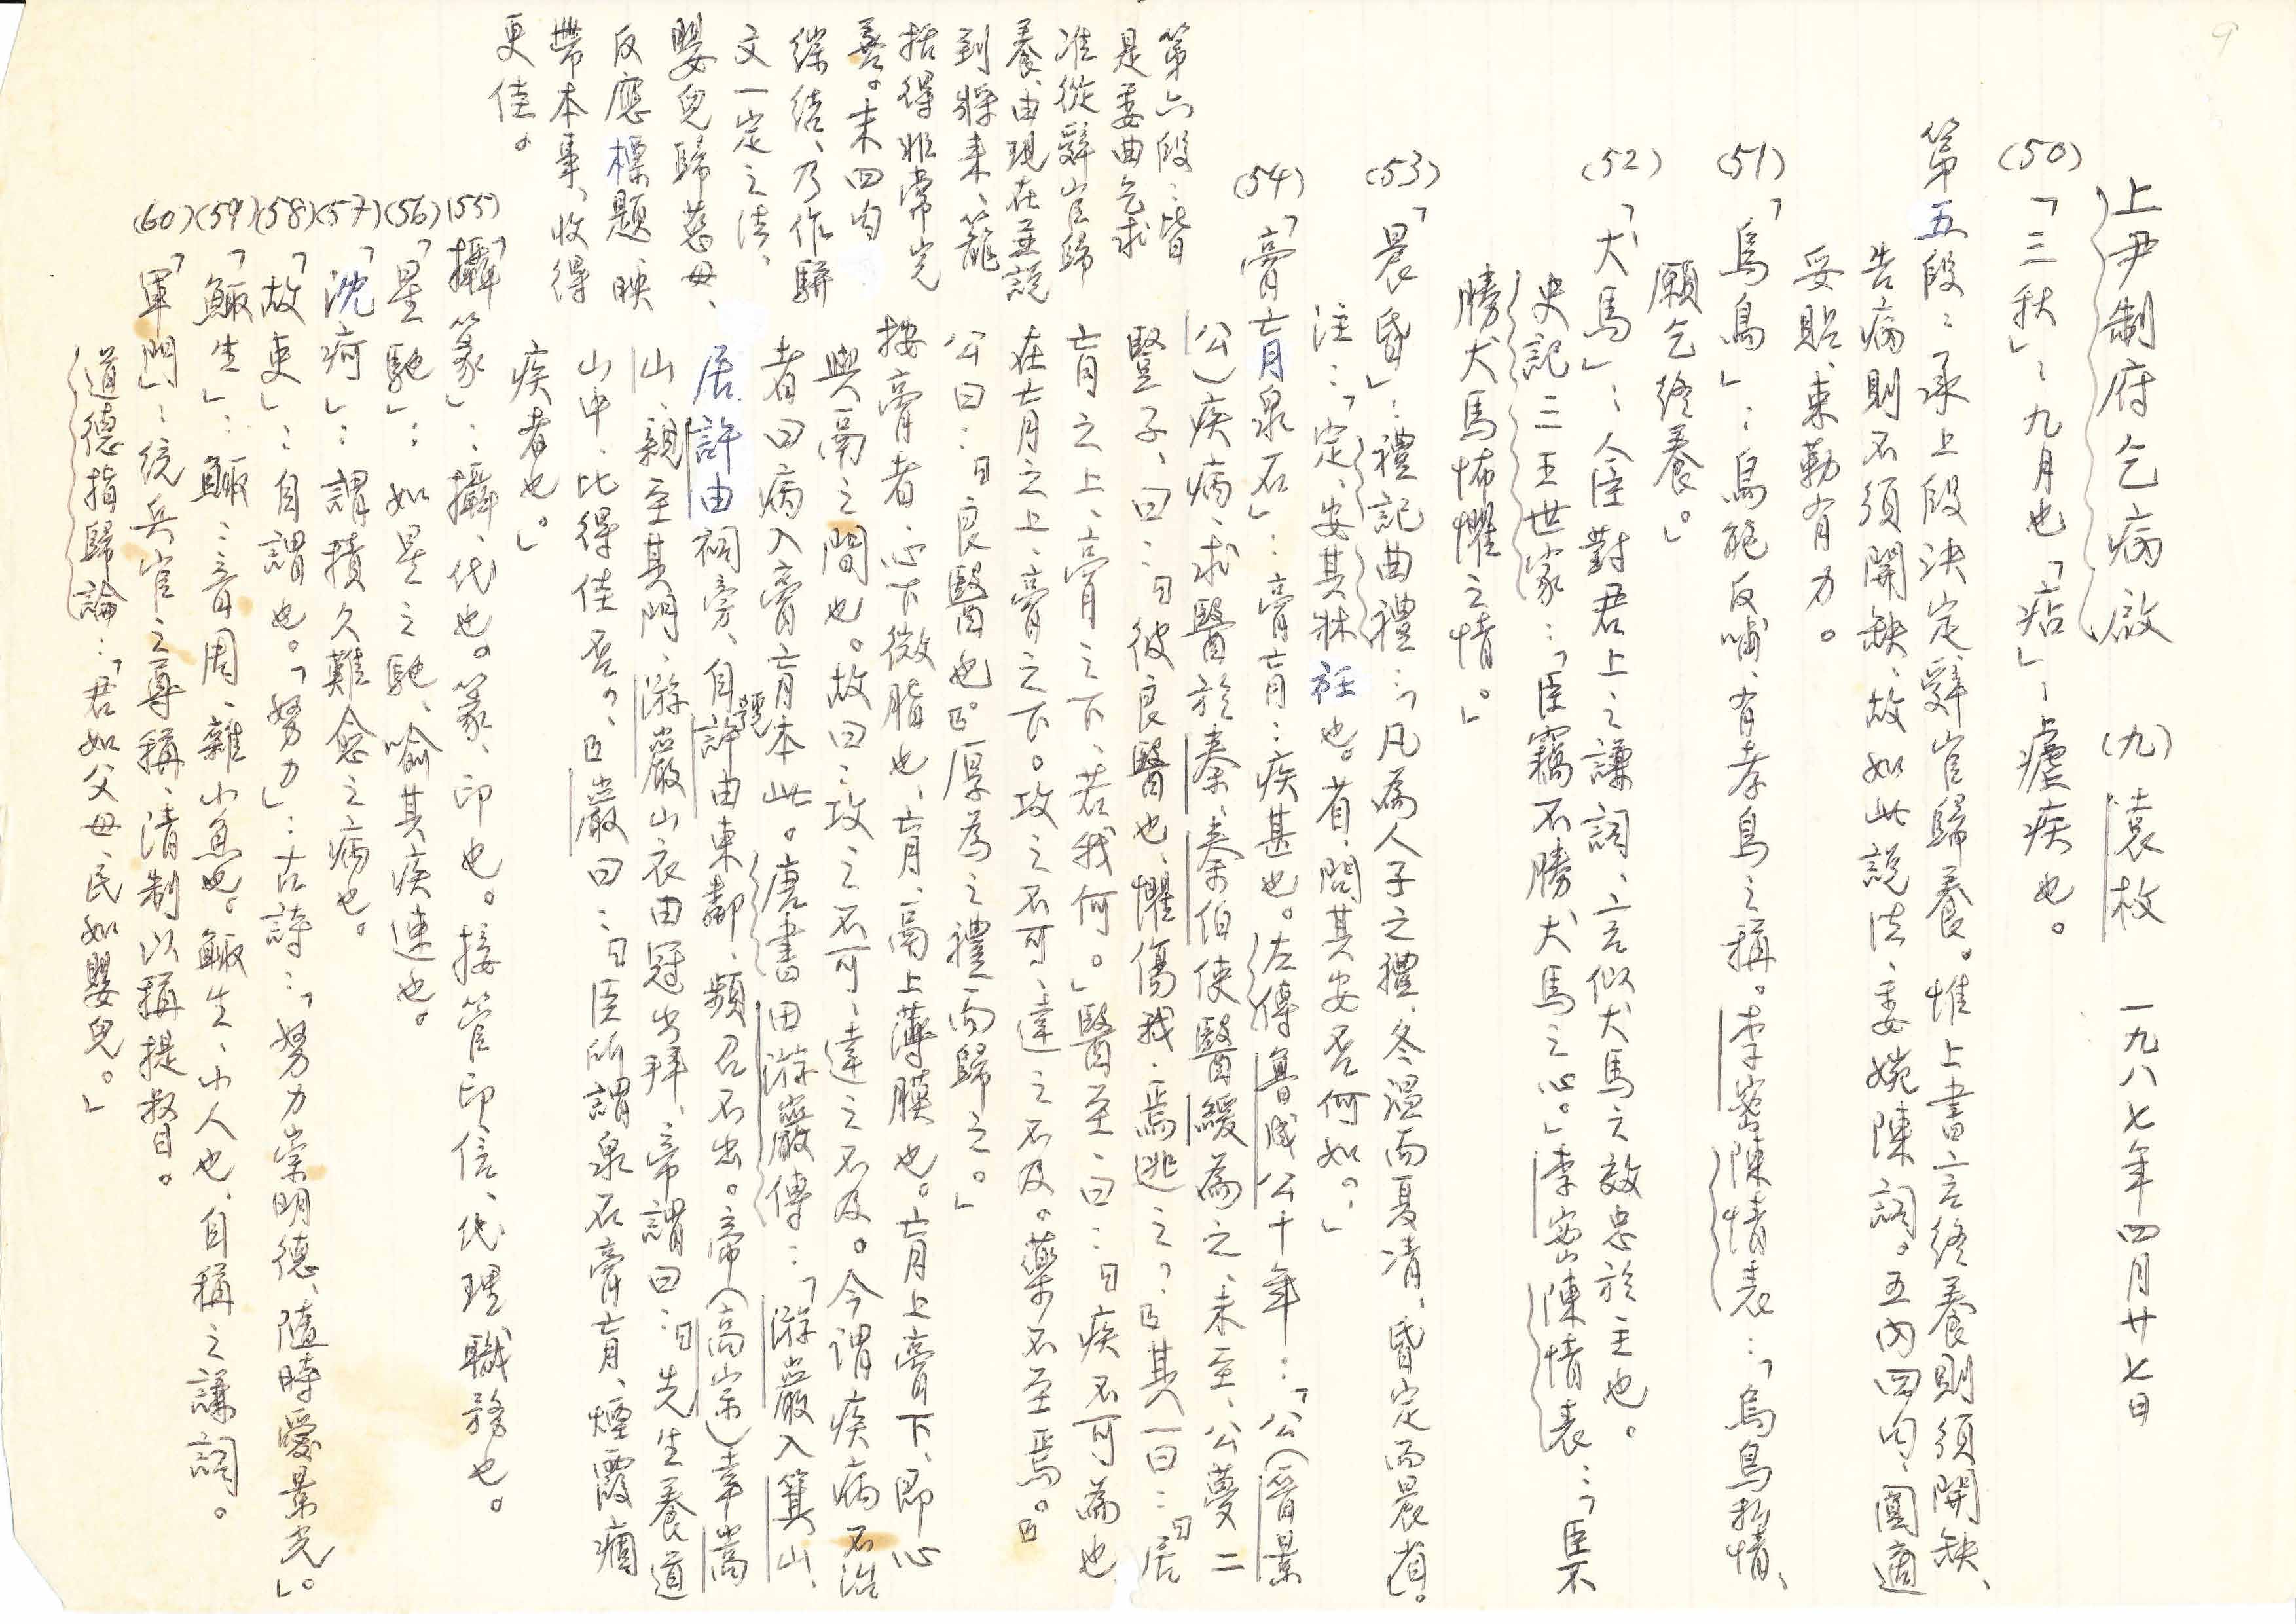 9
上尹制府乞病啟　(九)　袁枚　一九八七年四月廿七日
(50)「三秋」：九月也「痁」：瘧疾也。
第五段：承上段決定辭官歸養。惟上書言終養則須開缺、
告病則不須開缺、故如此說法、委婉陳詞。五內四句、圓適
妥貼、束勒有力。
(51)「烏鳥」：烏能反哺、有孝鳥之稱。李密陳情表：「烏鳥私情、
願乞終養。」
(52)「犬馬」：人臣對君上之謙詞、言似犬馬之效忠於主也。
史記三王世家：「臣竊不勝犬馬之心。」李密陳情表：「臣不
勝犬馬怖懼之情。」
(53)「晨昏」：禮記曲禮：「凡為人子之禮、冬溫而夏凊、昏定而晨省。
注：「定、安其牀衽也。省、問其安否何如。」
(54)「膏肓泉石」：膏肓：疾甚也。左傳魯成公十年：「公(晉景
公)疾病、求醫於秦、秦伯使醫緩為之、未至、公夢二
豎子、曰：『彼良醫也、懼傷我、焉逃之？』其一曰：『居
肓之上、膏之下、若我何。」醫至、曰：『疾不可為也
在肓之上、膏之下。攻之不可、達之不及。藥不至焉。』
公曰：『良醫也』。厚為之禮而歸之。」
按膏者、心下微脂也、肓、鬲上薄膜也。肓上膏下、即心
與鬲之間也。故曰：攻之不可、達之不及。今謂疾病不治
者曰病入膏肓本此。唐書田游巖傳：「游巖入箕山、
居許由祠旁、自號許由東鄰、頻召不出。帝(高宗)幸嵩
山、親至其門、游巖山衣由冠出拜、帝謂曰：『先生養道
山中、比得佳否？』巖曰：『臣所謂泉石膏肓、煙霞痼
疾者也。」
第六段：皆
是委曲乞求
准從辭官歸
養、由現在並說
到將來、籠
括得非常完
善。末四句
綜結、乃作駢
文一定之法、
嬰兒歸慈母、
反應標題、映
帶本事、收得
更佳。
(55)「攝篆」：攝、代也。篆、印也。接管印信、代理職務也。
(56)「星馳」：如星之馳、喻其疾速也。
(57)「沈疴」：謂積久難愈之病也。
(58)「故吏」：自謂也。「努力」：古詩：「努力崇明德、隨時愛景光」。
(59)「鯫生」：鯫：音周、雜小魚也。鯫生、小人也、自稱之謙詞。
(60)「軍門」：統兵官之尊稱、清制以稱提督。
道德指歸論：「君如父母、民如嬰兒。」